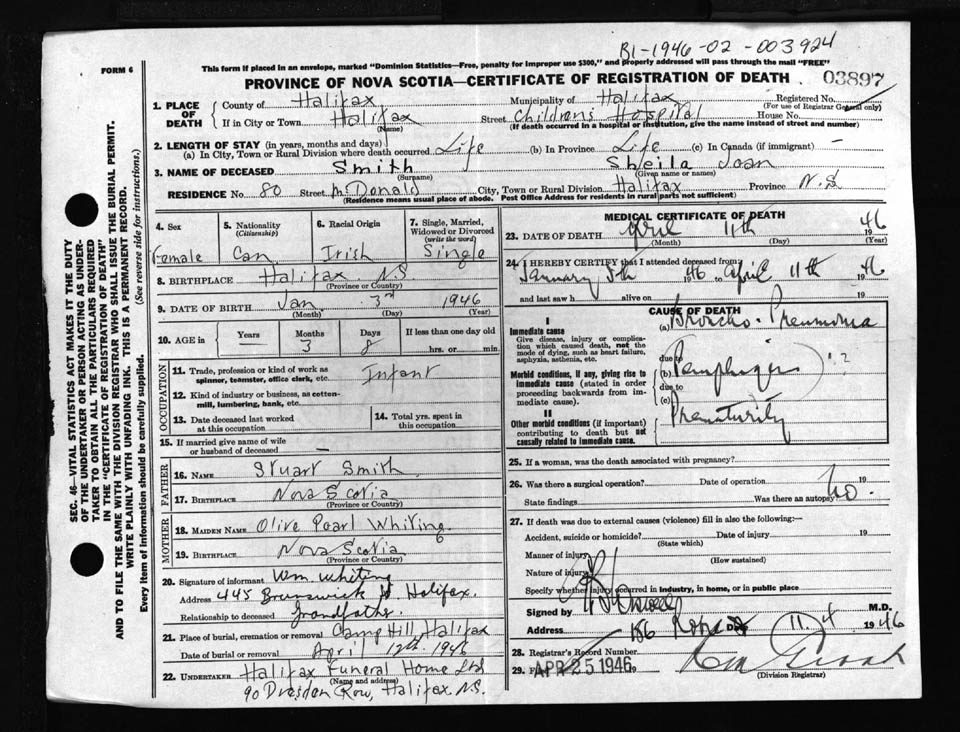 B1-1946-02-003924
FORM 6
This form if placed in an envelope, marked "Dominion Statistics—Free, penalty for improper use $300," and properly addressed will pass through the mail "FREE"
PROVINCE OF NOVA SCOTIA—CERTIFICATE OF REGISTRATION OF DEATH
03897
SEC. 46—VITAL STATISTICS ACT MAKES IT THE DUTY
OF THE UNDERTAKER OR PERSON ACTING AS UNDER-
TAKER TO OBTAIN ALL THE PARTICULARS REQUIRED
IN THE "CERTIFICATE OF REGISTRATION OF DEATH"
AND TO FILE THE SAME WITH THE DIVISION REGISTRAR WHO SHALL ISSUE THE BURIAL PERMIT.
WRITE PLAINLY WITH UNFADING INK. THIS IS A PERMANENT RECORD.
Every item of information should be carefully supplied. (See reverse side for instructions.)
1. PLACE OF DEATH
County of Halifax Municipality of Halifax Registered No.
(For use of Registrar General only)
If in City or Town Halifax Street Childrens Hospital House No.
(Name) (If death occurred in a hospital or institution, give the name instead of street and number)
2. LENGTH OF STAY (in years, months and days)
(a) In City, Town or Rural Division where death occurred Life (b) In Province Life (c) In Canada (if immigrant) —
3. NAME OF DECEASED Smith Sheila Joan
(Surname) (Given name or names)
RESIDENCE No. 80 Street McDonald City, Town or Rural Division Halifax Province N.S.
(Residence means usual place of abode. Post Office Address for residents in rural parts not sufficient)
4. Sex Female
5. Nationality (Citizenship) Can.
6. Racial Origin Irish
7. Single, Married, Widowed or Divorced (write the word) Single
8. BIRTHPLACE Halifax N.S
(Province or Country)
9. DATE OF BIRTH Jan. 3rd 1946
(Month) (Day) (Year)
10. AGE in Years — Months 3 Days 8 If less than one day old hrs. or min.
OCCUPATION
11. Trade, profession or kind of work as spinner, teamster, office clerk, etc. Infant
12. Kind of industry or business, as cotton-mill, lumbering, bank, etc.
13. Date deceased last worked at this occupation
14. Total yrs. spent in this occupation
15. If married give name of wife or husband of deceased —
FATHER
16. NAME Stuart Smith
17. BIRTHPLACE Nova Scotia
(Province or Country)
MOTHER
18. MAIDEN NAME Olive Pearl Whiting
19. BIRTHPLACE Nova Scotia
(Province or Country)
20. Signature of informant Wm. Whiting
Address 445 Brunswick St. Halifax.
Relationship to deceased Grandfather.
21. Place of burial, cremation or removal Camp Hill, Halifax
Date of burial or removal April 12th. 1946
22. UNDERTAKER Halifax Funeral Home Ltd
(Name and address)
90 Dresden Row, Halifax N.S.
MEDICAL CERTIFICATE OF DEATH
23. DATE OF DEATH April 11th 1946
(Month) (Day) (Year)
24. I HEREBY CERTIFY that I attended deceased from
January 8th 1946 April 11th 1946
and last saw h alive on 19
CAUSE OF DEATH
I
Immediate cause
Give disease, injury or complication which caused death, not the mode of dying, such as heart failure, asphyxia, asthenia, etc.
(a) Broncho-Pneumonia
due to
Morbid conditions, if any, giving rise to immediate cause (stated in order proceeding backwards from immediate cause).
(b) Pemphigus ?
due to
(c)
II
Other morbid conditions (if important) contributing to death but not causally related to immediate cause.
Prematurity
25. If a woman, was the death associated with pregnancy?
26. Was there a surgical operation? Date of operation 19
State findings Was there an autopsy? No.
27. If death was due to external causes (violence) fill in also the following:—
Accident, suicide or homicide? Date of injury 19
(State which)
Manner of injury
(How sustained)
Nature of injury
Specify whether injury occurred in industry, in home, or in public place
Signed by M.D.
Address 186 Date 11.4 1946
28. Registrar's Record Number
29. APR 25 1946 19
(Division Registrar)